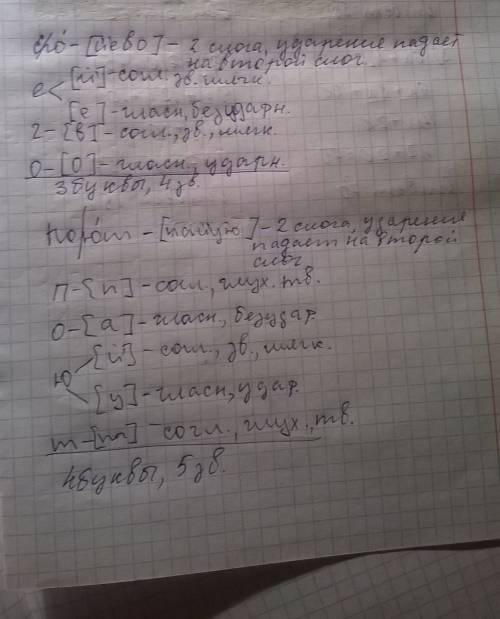 его́ - [йево] - 2 слога, ударение падает
на второй слог.
е < [й] - согл. зв. мягк.
[е] - гласн., безударн.
г - [в] - согл., зв., мягк.
о - [о] - гласн., ударн.
3 буквы, 4 зв.
- 2 слога, ударение
падает на второй
слог
п - [п] - согл., глух. тв.
о - [а] - гласн., безудар.
ю < [й] - согл., зв., мягк.
[у] - гласн., удар.
т - [т] - согл., глух., тв.
4 буквы, 5 зв.